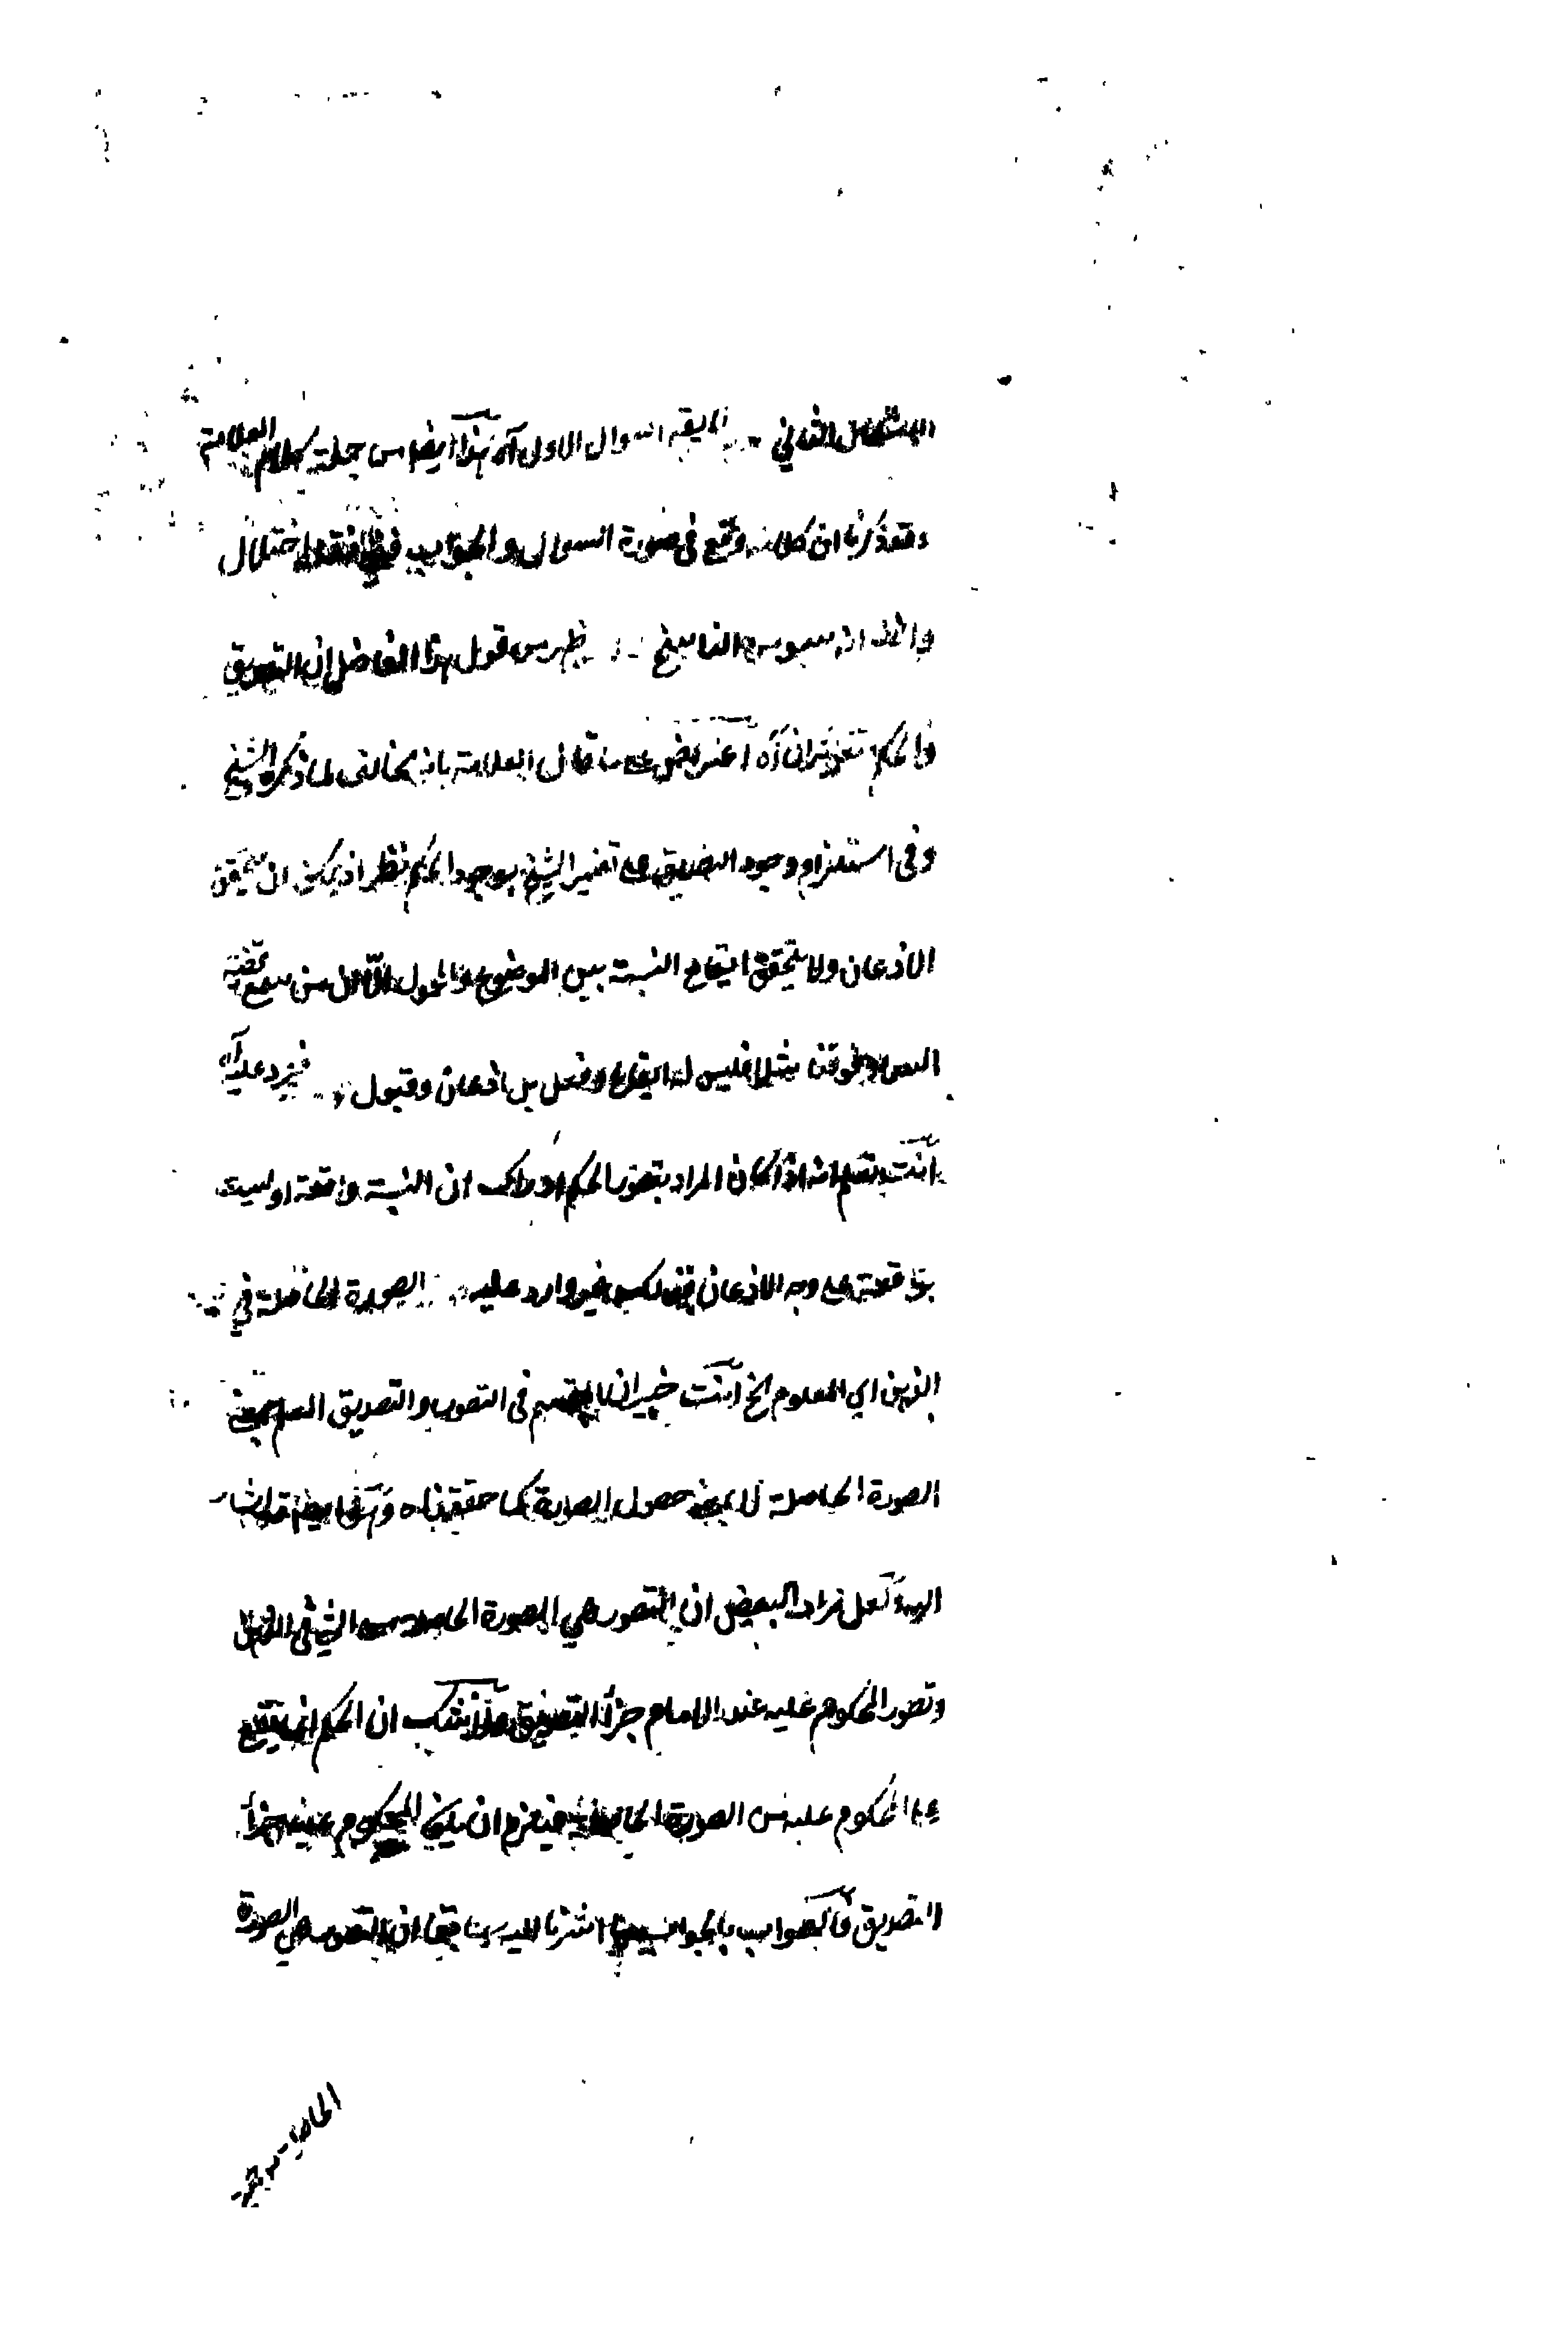 الاشكال الثاني السوال الاول آه هذا ايضا من جملة كلام العلامة
وقد ذكرنا ان كلامه وقع في صورة السوال والجواب اختلال
والظ انه سهو من الناسخ يظهر من قول هذا الفاضل ان التصديق
والحكم آه اعتراض على ما قال العلامة بانه مخالف لما ذكره الشيخ
وفي استلزام وجود التصديق على تفسير الشيخ بوجود الحكم نظر اذ يمكن ان يتحقق
الاذعان ولا يتحقق ايقاع النسبة بين الموضوع والمحمول الا ان من سمع قضية
السماء فوقنا مثلا فليس له ايقاع وفعل بل اذعان وقبول فيرد عليه
انت تعلم انه اذا كان المراد بتصور الحكم ادراك ان النسبة واقعة او ليست
بواقعة على وجه الاذعان فذلك غير وارد عليه الصورة الحاصلة في
الذهن اي المعلوم الخ انت خبير ان المنقسم في التصور والتصديق العلم بمعنى
الصورة الحاصلة لا بمعنى حصول الصورة كما حققناه
اليه لعل مراد البعض ان التصور هي الصورة الحاصلة من الشيء في العقل
وتصور المحكوم عليه عند الامام جزأ التصديق ولا شك ان الحكم انما يقع
على المحكوم عليه من الصورة الحاصلة فيلزم ان يكون المحكوم عليه جزأ
التصديق فالصواب بالجواب ما اشرنا اليه سابقا ان التصور هي الصورة
الحاصلة